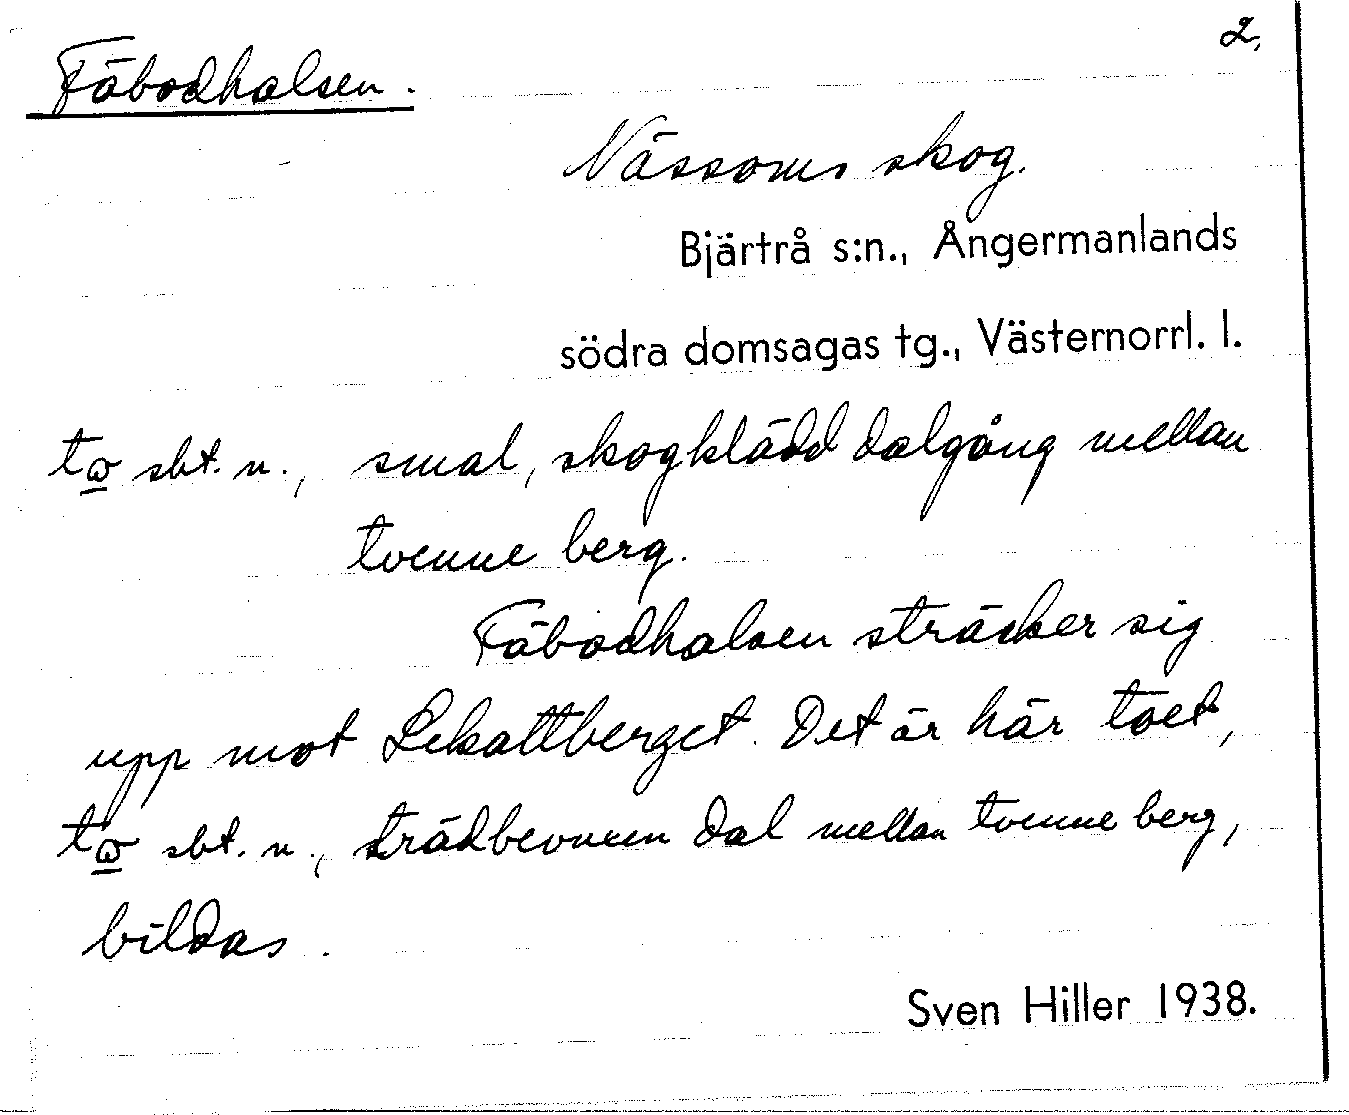 2,
Fäbodhalsen.
Nässoms skog.
Bjärtrå s:n., Ångermanlands
södra domsagas tg., Västernorrl. l.
sbt. n., smal, skogklädd dalgång mellan
tvenne berg.
Fäbodhalsen sträcker sig
upp mot Lekattberget. Det är här toet,
sbt. n., trädbevuxen dal mellan tvenne berg,
bildas.
Sven Hiller 1938.